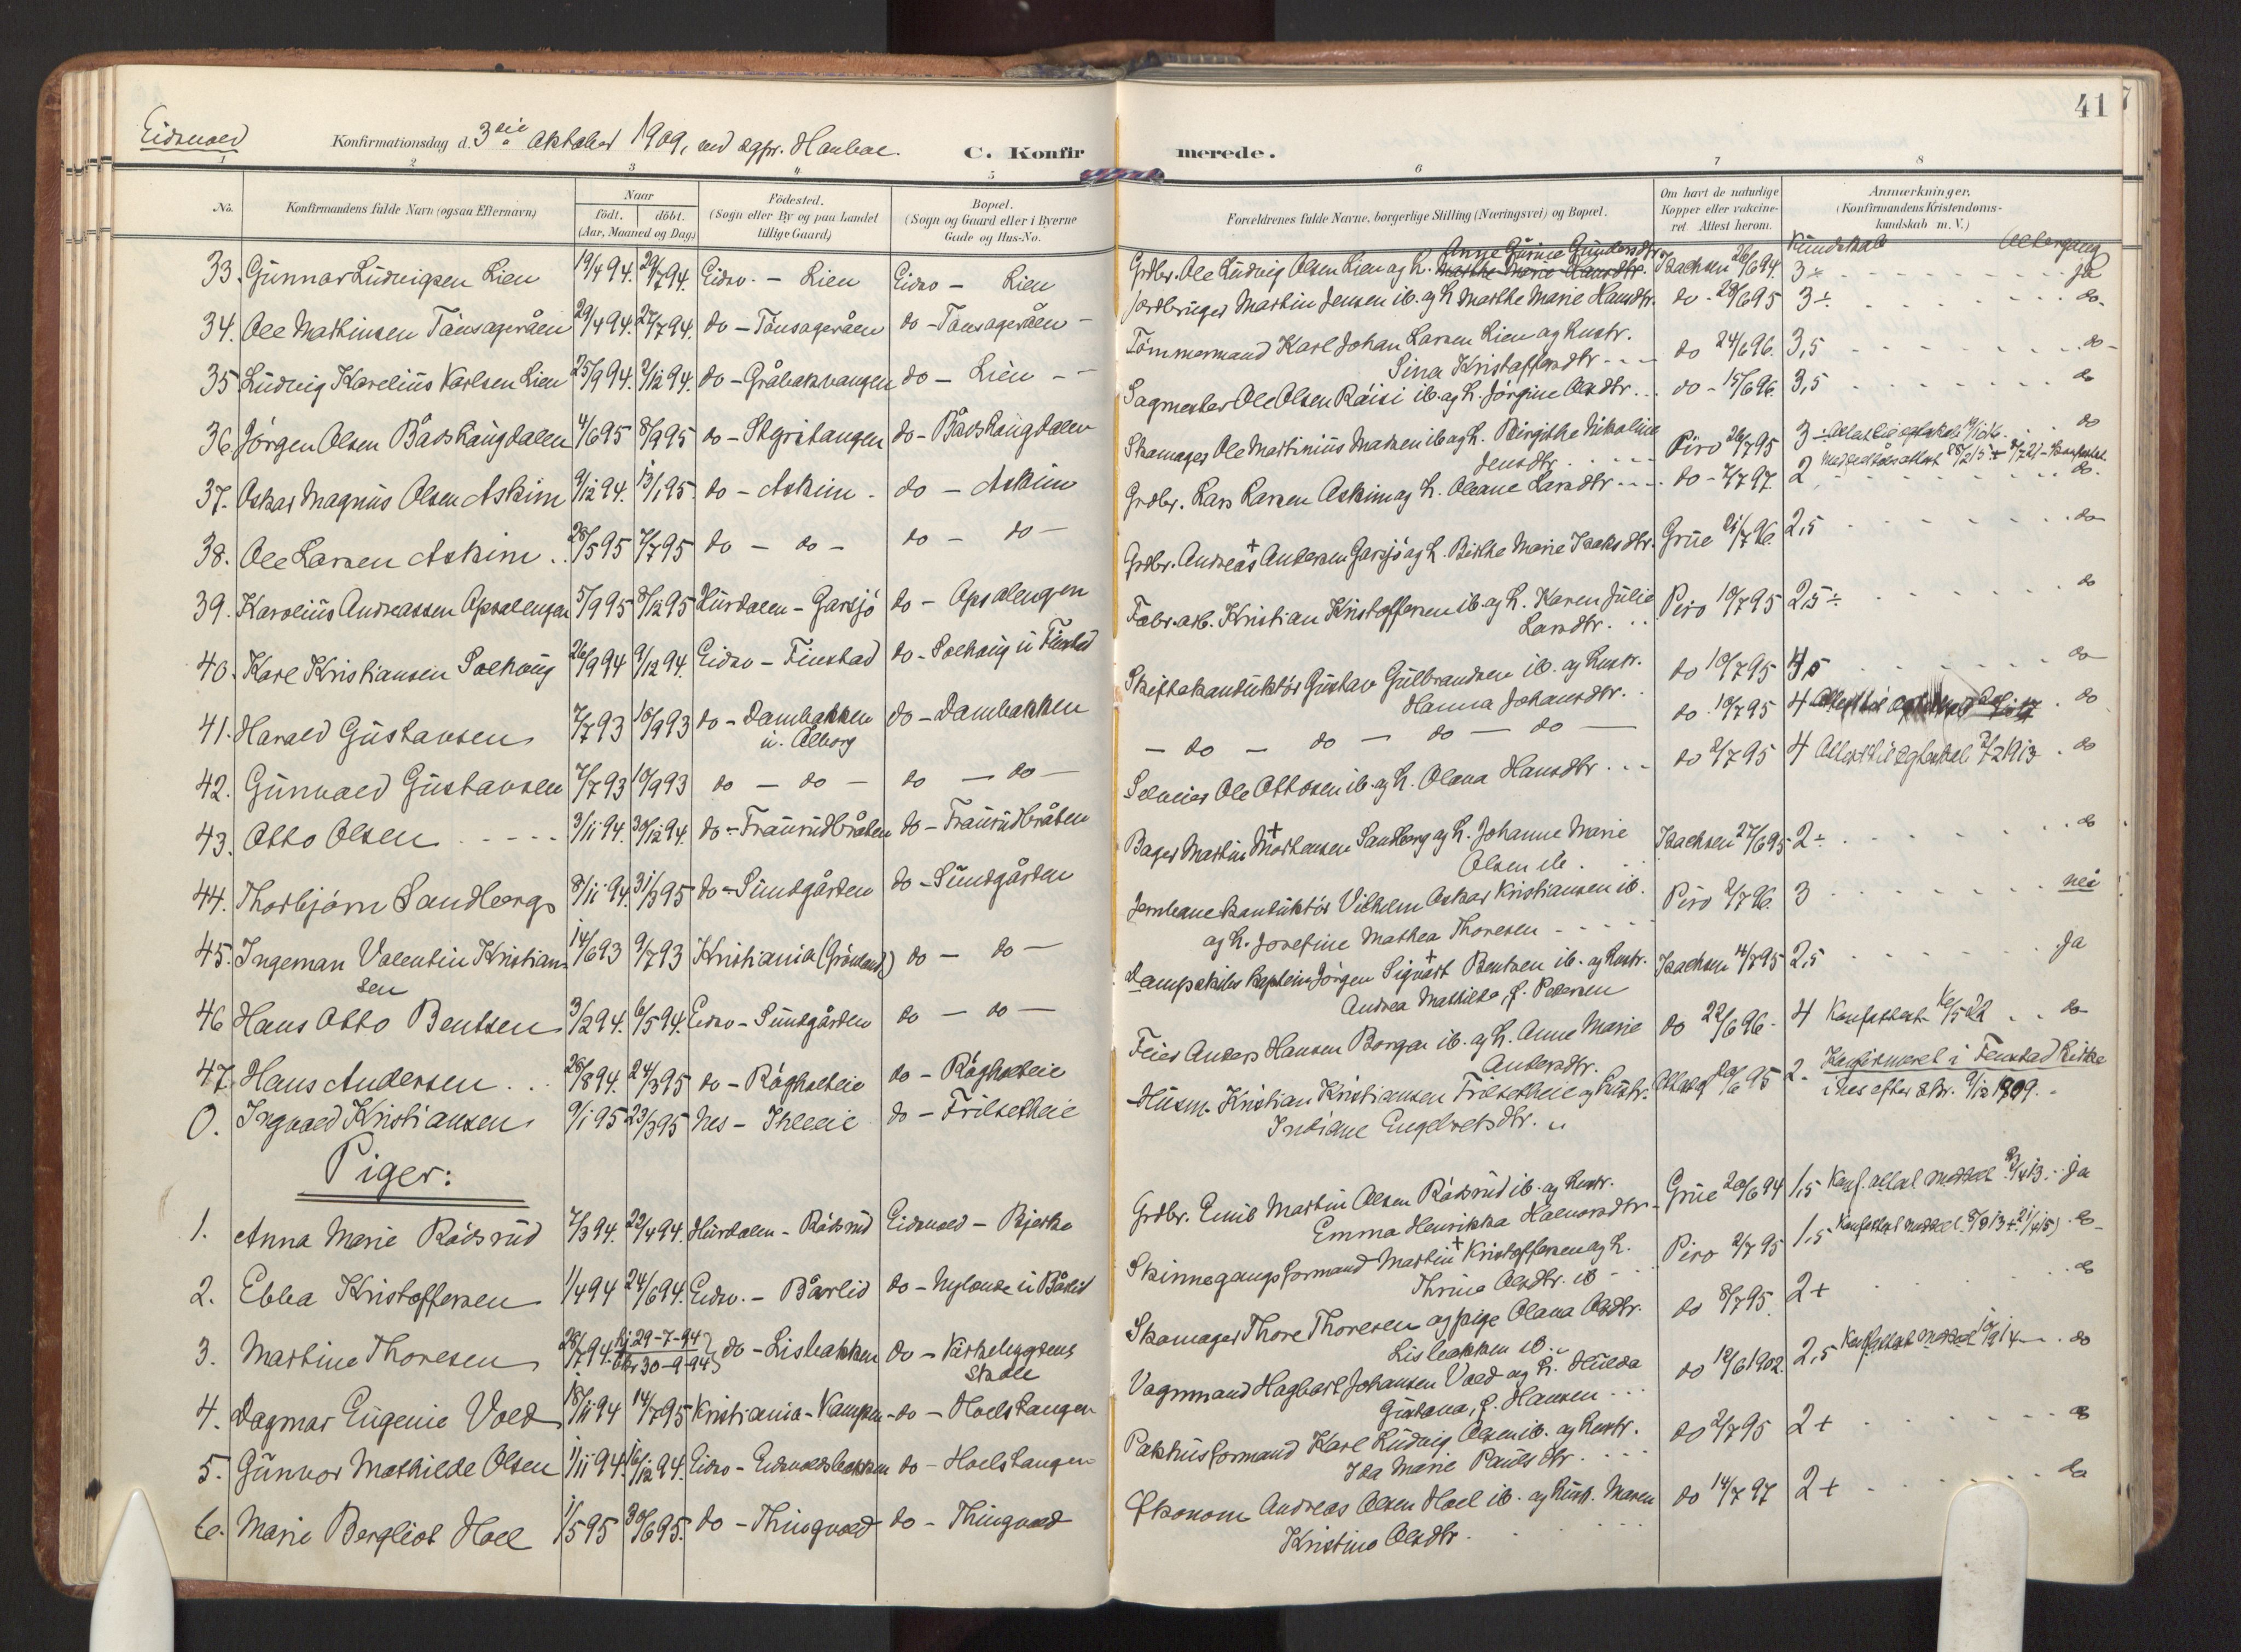 41
Eidsvold
Konfirmationsdag d. 3die oktober 1909, ved sgpr.
C. Konfirmerede.
1 2 3 4 5 6 7 8
No.
Konfirmandens fulde Navn (ogsaa Efternavn)
Naar
födt. döbt.
(Aar, Maaned og Dag)
Födested.
(Sogn eller By og paa Landet
tillige Gaard)
Bopæl.
(Sogn og Gaard eller i Byerne
Gade og Hus-No.
Forældrenes fulde Navne, borgerlige Stilling (Næringsvei) og Bopæl.
Om havt de naturlige
Kopper eller vakcine-
ret Attest herom.
Anmærkninger.
(Konfirmandens Kristendoms-
kundskab m. V.)
Kundskab
33. Gunnar Ludvigsen Lien 19/4 94. 29/7 94. Eidsv. - Lien Eidsv - Lien
Anne Gurine Gundersdtr.
Grdbr. Ole Ludvig Olsen Lien og h. Marthe Marie Hansdtr. Isachsen 26/6 94. 3÷ ja
34. Ole Martinsen 29/4 94. 27/7 94. do
Jordbruger Martin Jensen ib. og h Marthe Marie Hansdtr. do - 28/6 95 3÷ do
35 Ludvig Karelius Karlsen Lien 25/9 94. 2/12 94. do - Gråbakvangen do - Lien
Tömmermand Karl Johan Larsen Lien og hustr.
Sina Kristoffersdtr do 24/6 96. 3,5 do
36. Jörgen Olsen Bårdshaugdalen 4/6 95 8/9 95 do - Styritangen do - Bårdshaugdalen
Sagmester Ole Olsen Räisi ib. og h. Jörgine Olsdtr. do - 15/6 96. 3,5 do
37. Oskar Magnus Olsen Askim 9/12 94. 13/1 95. do - Askim do - Askim
Skomager Ole Martinius Madsen ib og h. Birgithe Nikoline
Jensdtr. Piro 26/7 95 3÷ do
38. Ole Larsen Askim 28/5 95 7/7 95 do - do - do - do -
Grdbr. Lars Larsen Askim og h. Oleane Larsdtr do - 7/7 97. 2 do
39. Karolius Andreassen Apsalengen 5/9 95 8/12 95 Hurdalen - Garsjö do - Apsalengen
Grdbr. Andreas + Andersen Garsjö og h. Birthe Marie Isaksdtr. Grue 21/7 96. 2,5 do
40. Karl Kristiansen Solhaug 26/9 94 9/12 94. Eidsv - Finstad do - Solhaug u Finstad
Fabr.arb. Kristian Kristoffersen ib. og h. Karen Julie
Larsdtr. Piro 10/7 95 2,5÷ do
41. Harald Gustavsen 7/7 93 10/9 93 do - Dambakken do - Dambakken
u. Ålborg
Skiftekonduktör Gustav Gulbrandsen ib. og hustr.
Hanna Johansdtr. do 10/7 95 do
42. Gunvald Gustavsen 7/7 93 10/9 93 do - do - do - do -
- do - do - do - do - do 10/7 95 4 do
43. Otto Olsen 3/11 94. 30/12 94. do - Traurudbråten do - Traurudbråten
Selveier Ole Ottosen ib. og h. Olava Hansdtr. do 2/7 95 4 Attest til 7/2 1913 do
44. Thorbjörn Sandberg 8/11 94. 31/3 95 do - Sundgården do - Sundgården
Bager Martin + Mortensen Sandberg og h. Johanne Marie
Olsen ib. Isachsen 27/6 95 2÷ do
45. Ingeman Valentin Kristian-
sen 14/6 93 9/7 93 Kristiania (Grönland) do - do -
Jernbanekonduktör Vilhelm Oskar Kristiansen ib.
og h. Josefine Mathea Thoresen Piro 2/7 96. 3 nei
46 Hans Otto Bentsen 3/2 94. 6/5 94. Eidsv - Sundgården do - do -
Dampskibs Kaptein Jörgen Sigvart + Bentsen ib. og hustr.
Andrea Mathilde, f. Petersen Isachsen 4/7 95 2,5 Ja
47. Hans Andersen 26/8 94. 24/3 95 do - Rågholteie do - Rågholteie
Feier Anders Hansen Borgen ib. og h. Anne Marie
Andersdtr. do 22/6 96 4 Konfattest 16/5 22 do
0. Ingvald Kristiansen 9/1 95 23/3 95 Nes - Ihleeie do - Frilsetheie
Husm. Kristian Kristiansen Frilsetheie og hustr.
Indiane Engebretsdtr. 2. Konfirmeret i Fenstad kirke
i Nes efter 9/12 1909.
Piger:
1. Anna Marie Rådsrud 7/3 94. 22/4 94. Hurdalen - Rådsrud Eidsvold - Bjerke
Grdbr. Emil Martin Olsen Rådsrud ib. og hustr.
Emma Henrikka Halvorsdtr Grue 20/6 94 1,5 Konf.attest meddel ja
2. Ebba Kristoffersen 1/4 94 24/6 94. Eidsv. - Bårlid do - Nylende u Bårlid
Skinnegangsformand Martin + Kristoffersen og h.
Thrine Olsdtr. ib Piro 2/7 95 1,5 Konfattest meddel. do
3. Martine Thoresen 28/7 94. hj 29-7-94 do - Lisbakken do - Kirkebygdens
Skole
30-9-94
Skomager Thore Thoresen og pige Olava Olsdtr.
Lisbakken ib. do 8/7 95. 2+ do
4. Dagmar Eugenie Vold 18/11 94 14/7 95 Kristiania - Kampen do - Hoelstangen
Vognmand Hagbart Johansen Vold og h. Hulda
Gustava, f. Hansen do 12/6 1902. 2,5 Konfattest meddel do
5. Gunvor Mathilde Olsen 1/11 94. 16/12 94. Eidsv - Eidsvoldsbakken do - Hoelstangen
Pakhusformand Karl Ludvig Olsen ib. og hustr.
Ida Marie Paulsdtr. do 2/7 95 2+ do
6. Marie Bergliot Hoel 1/5 95 30/6 95. do - Thingvold do - Thingvold
Ökonom Andreas Olsen Hoel ib. og hustr. Maren
Kristine Olsdtr. do 14/7 97 2+ do